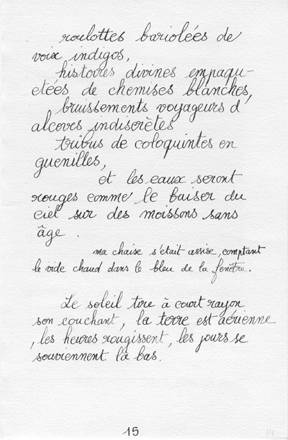 roulottes bariolées de
voix indigos,
histoires divines empaqu-
etées de chemises blanches,
bruissements voyageurs d'
alcoves indiscrètes
tribus de coloquintes en
guenilles,
et les eaux seront
rouges comme le baiser du
ciel sur des moissons sans
âge.
ma chaise s'était assise, comptant
le vide chaud dans le bleu de la fenêtre.
Le soleil tire à court rayon
son couchant, la terre est aérienne
, les heures rougissent, les jours se
souviennent là bas.
15